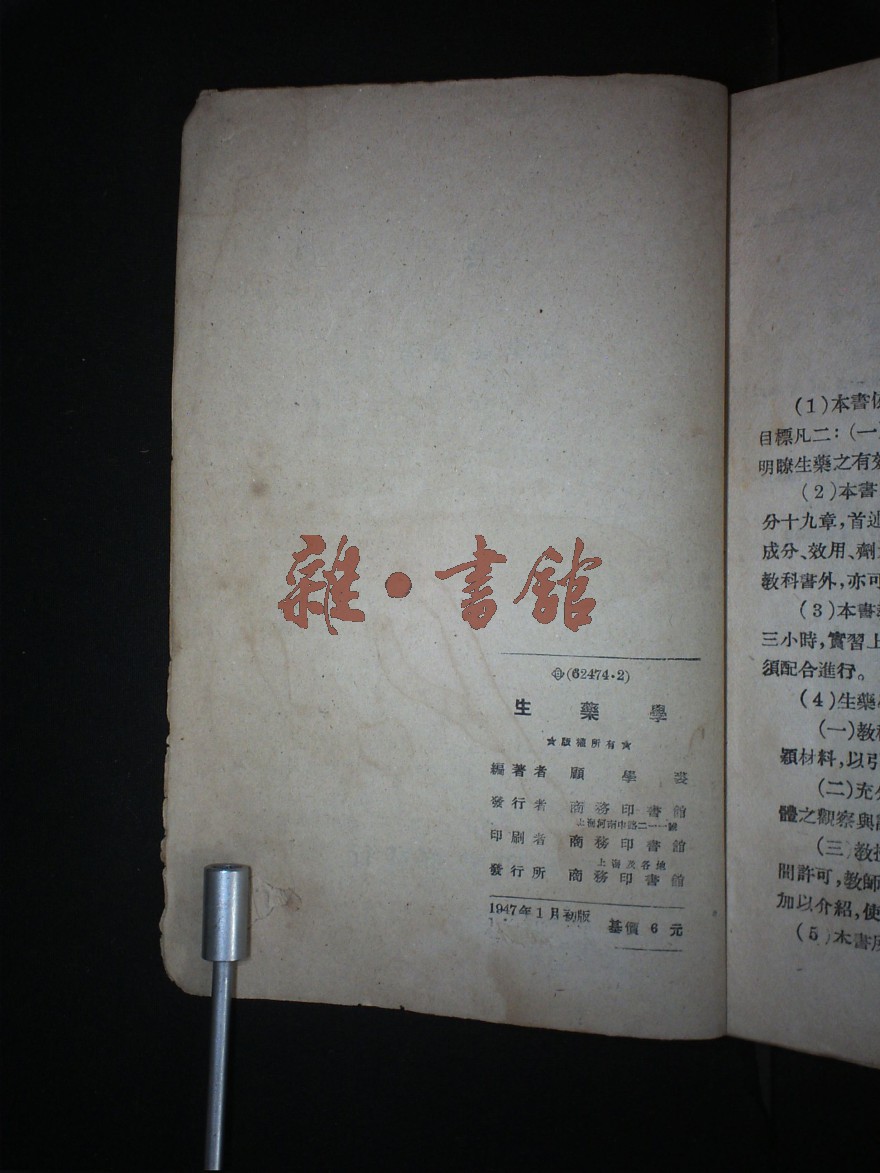 雜•書館
(62474·2)
生藥學
★版權所有★
編著者 顧學裘
發行者 商務印書館
上海河南中路二一一號
印刷者 商務印書館
上海及各地
發行所 商務印書館
1947年1月初版
基價 6 元
(1)本書
目標凡二：(一
明瞭生藥之有效
(2)本書
分十九章,首述
成分、效用、劑
教科書外,亦可
(3)本書
三小時,實習上
須配合進行。
(4)生藥
(一)教
穎材料,以引
(二)充分
體之觀察與
(三)教授
間許可,教師
加以介紹,使
(5)本書